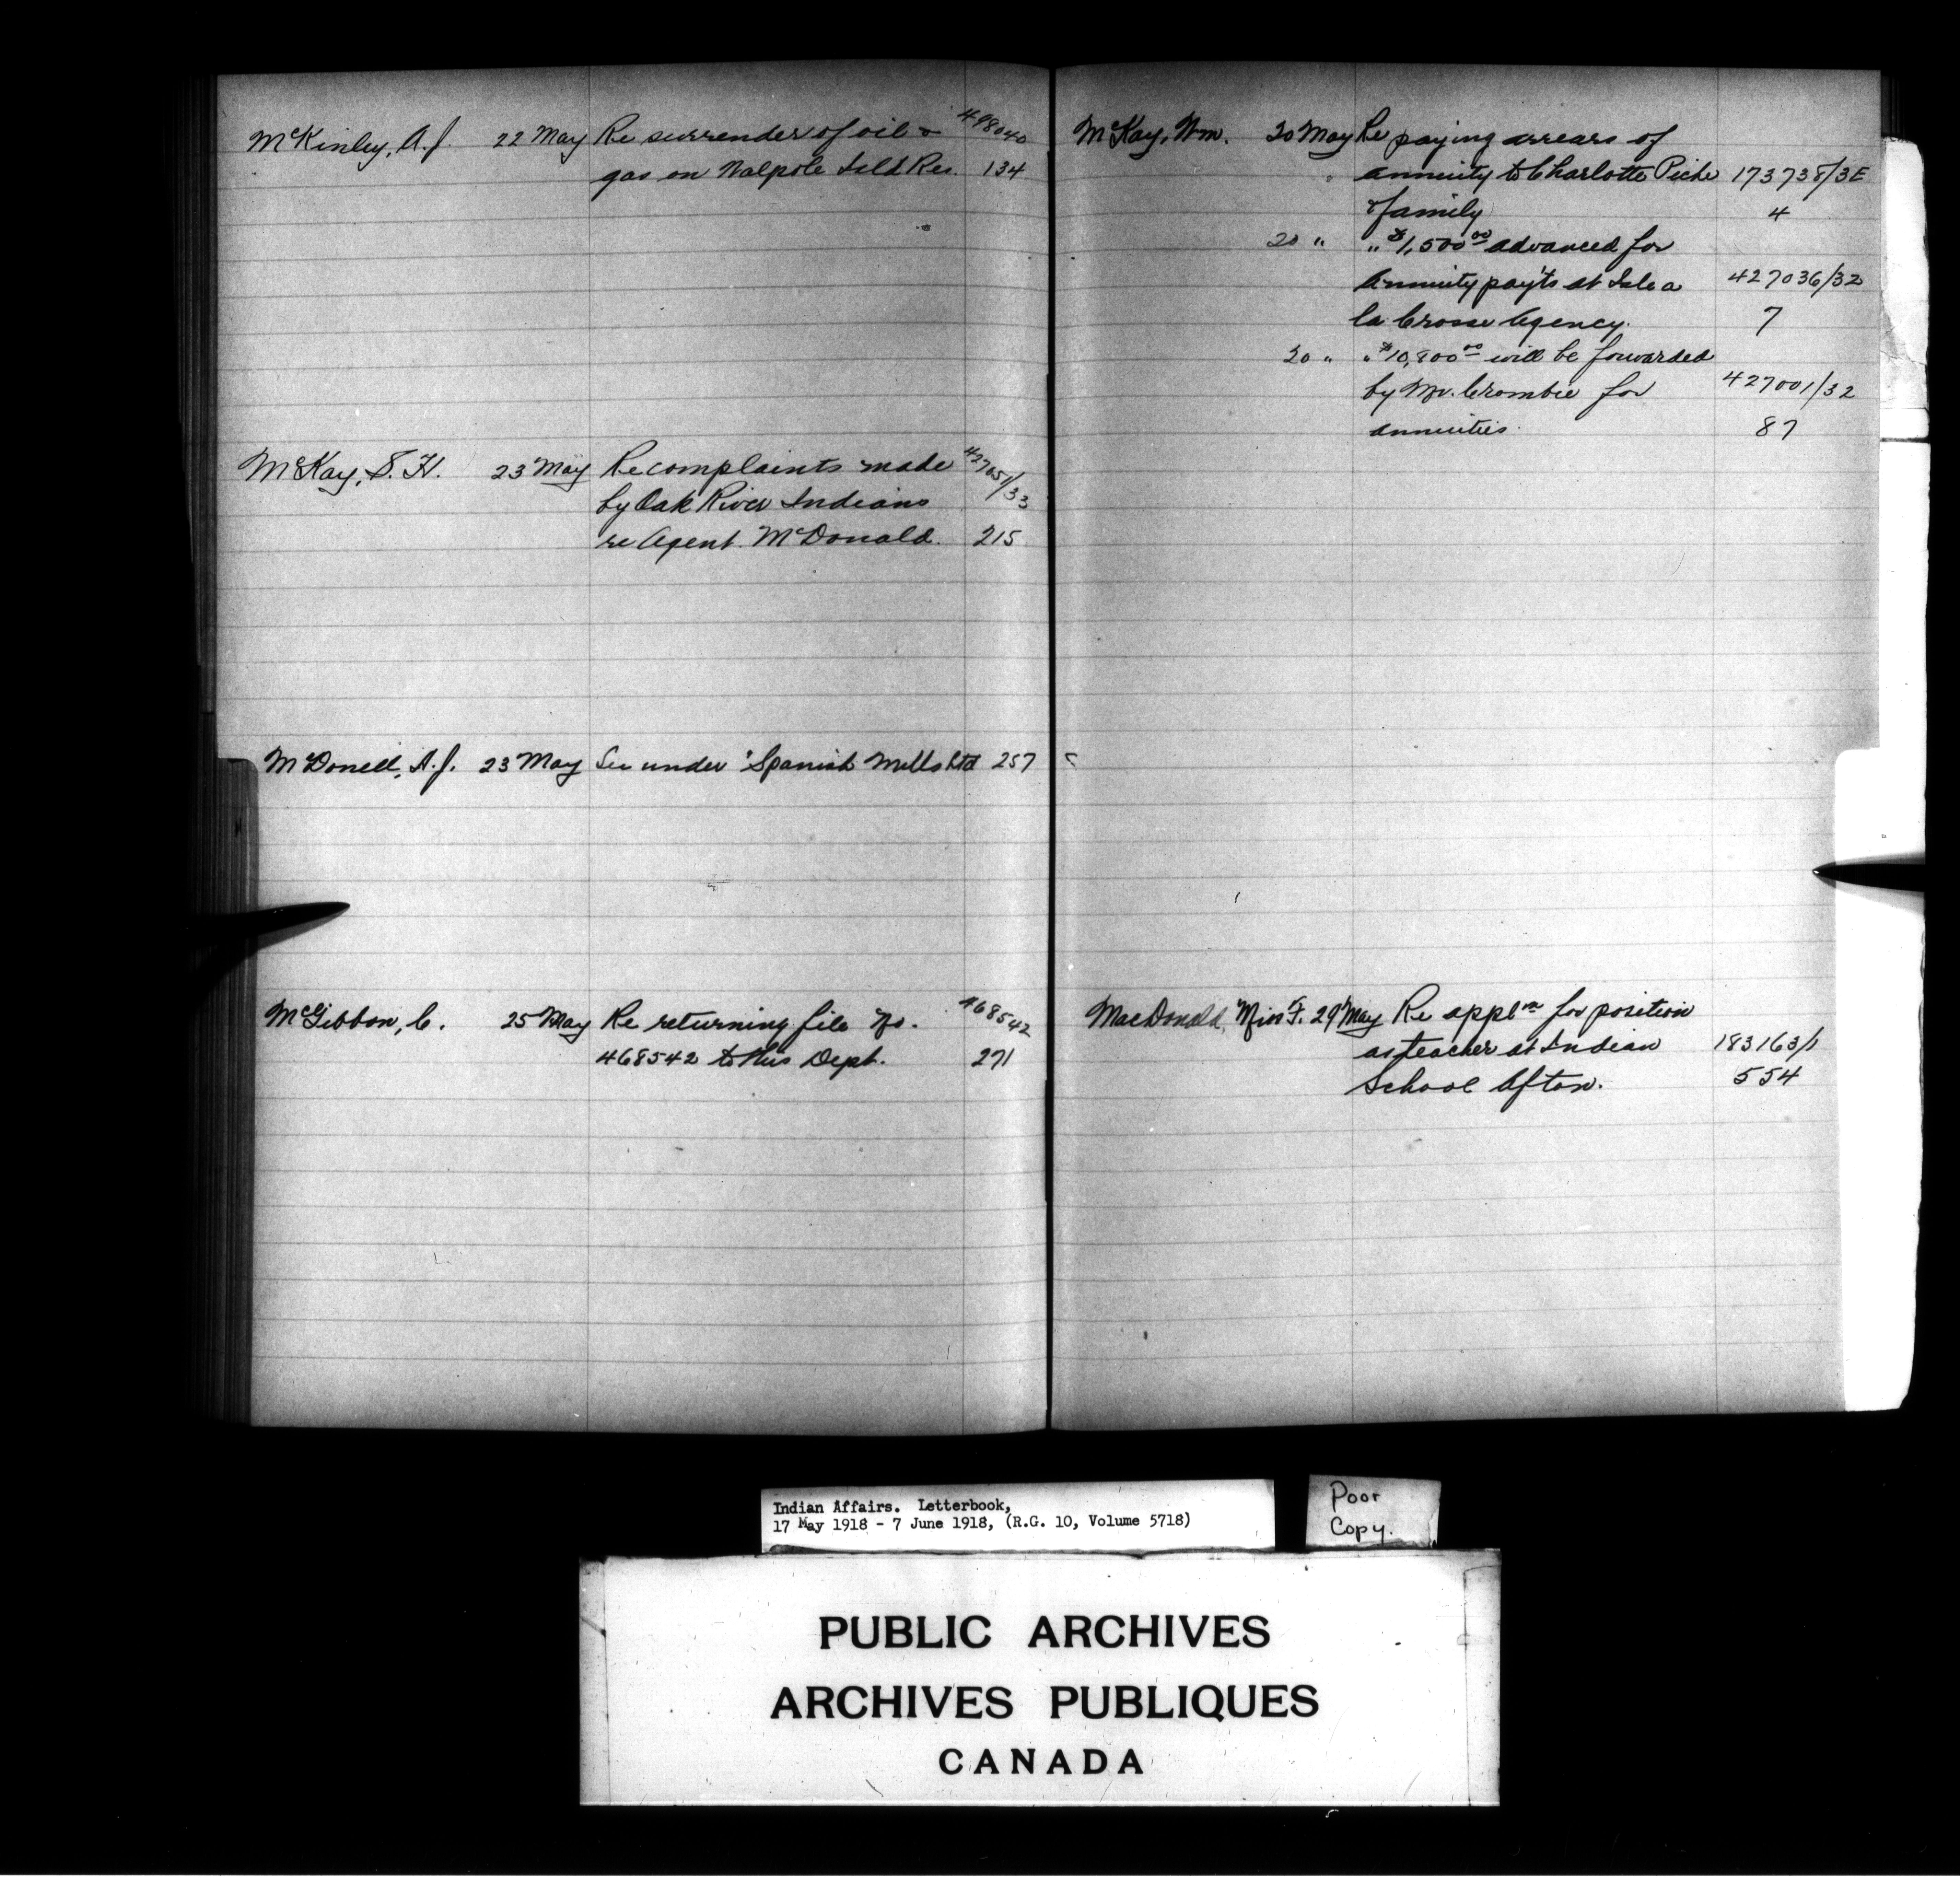 McKinley, A.J. 22 May Re surrender of oil & 498040
gas on Walpole Isld Res. 134
McKay, S.H. 23 May Re complaints made 427051/33
by Oak River Indians
re Agent McDonald. 215
McDonell, A.J. 23 May See under "Spanish Mills Ltd 257
McGibbon, C. 25 May Re returning file No. 468542
468542 to this Dept. 271
McKay, Wm. 20 May Re paying arrears of
annuity to Charlotte Piche 173738/3E
& family 4
20 " " $1,500.00 advanced for
annuity pay'ts at Isle a 427036/32
la Crosse Agency. 7
20 " " $10,800.00 will be forwarded
by Mr. Crombie for 427001/32
annuities. 87
MacDonald, Miss F. 29 May Re appl'n for position
as teacher at Indian 183163/1
School Afton. 554
Indian Affairs. Letterbook,
17 May 1918 - 7 June 1918, (R.G. 10, Volume 5718)
Poor
Copy.
PUBLIC ARCHIVES
ARCHIVES PUBLIQUES
CANADA